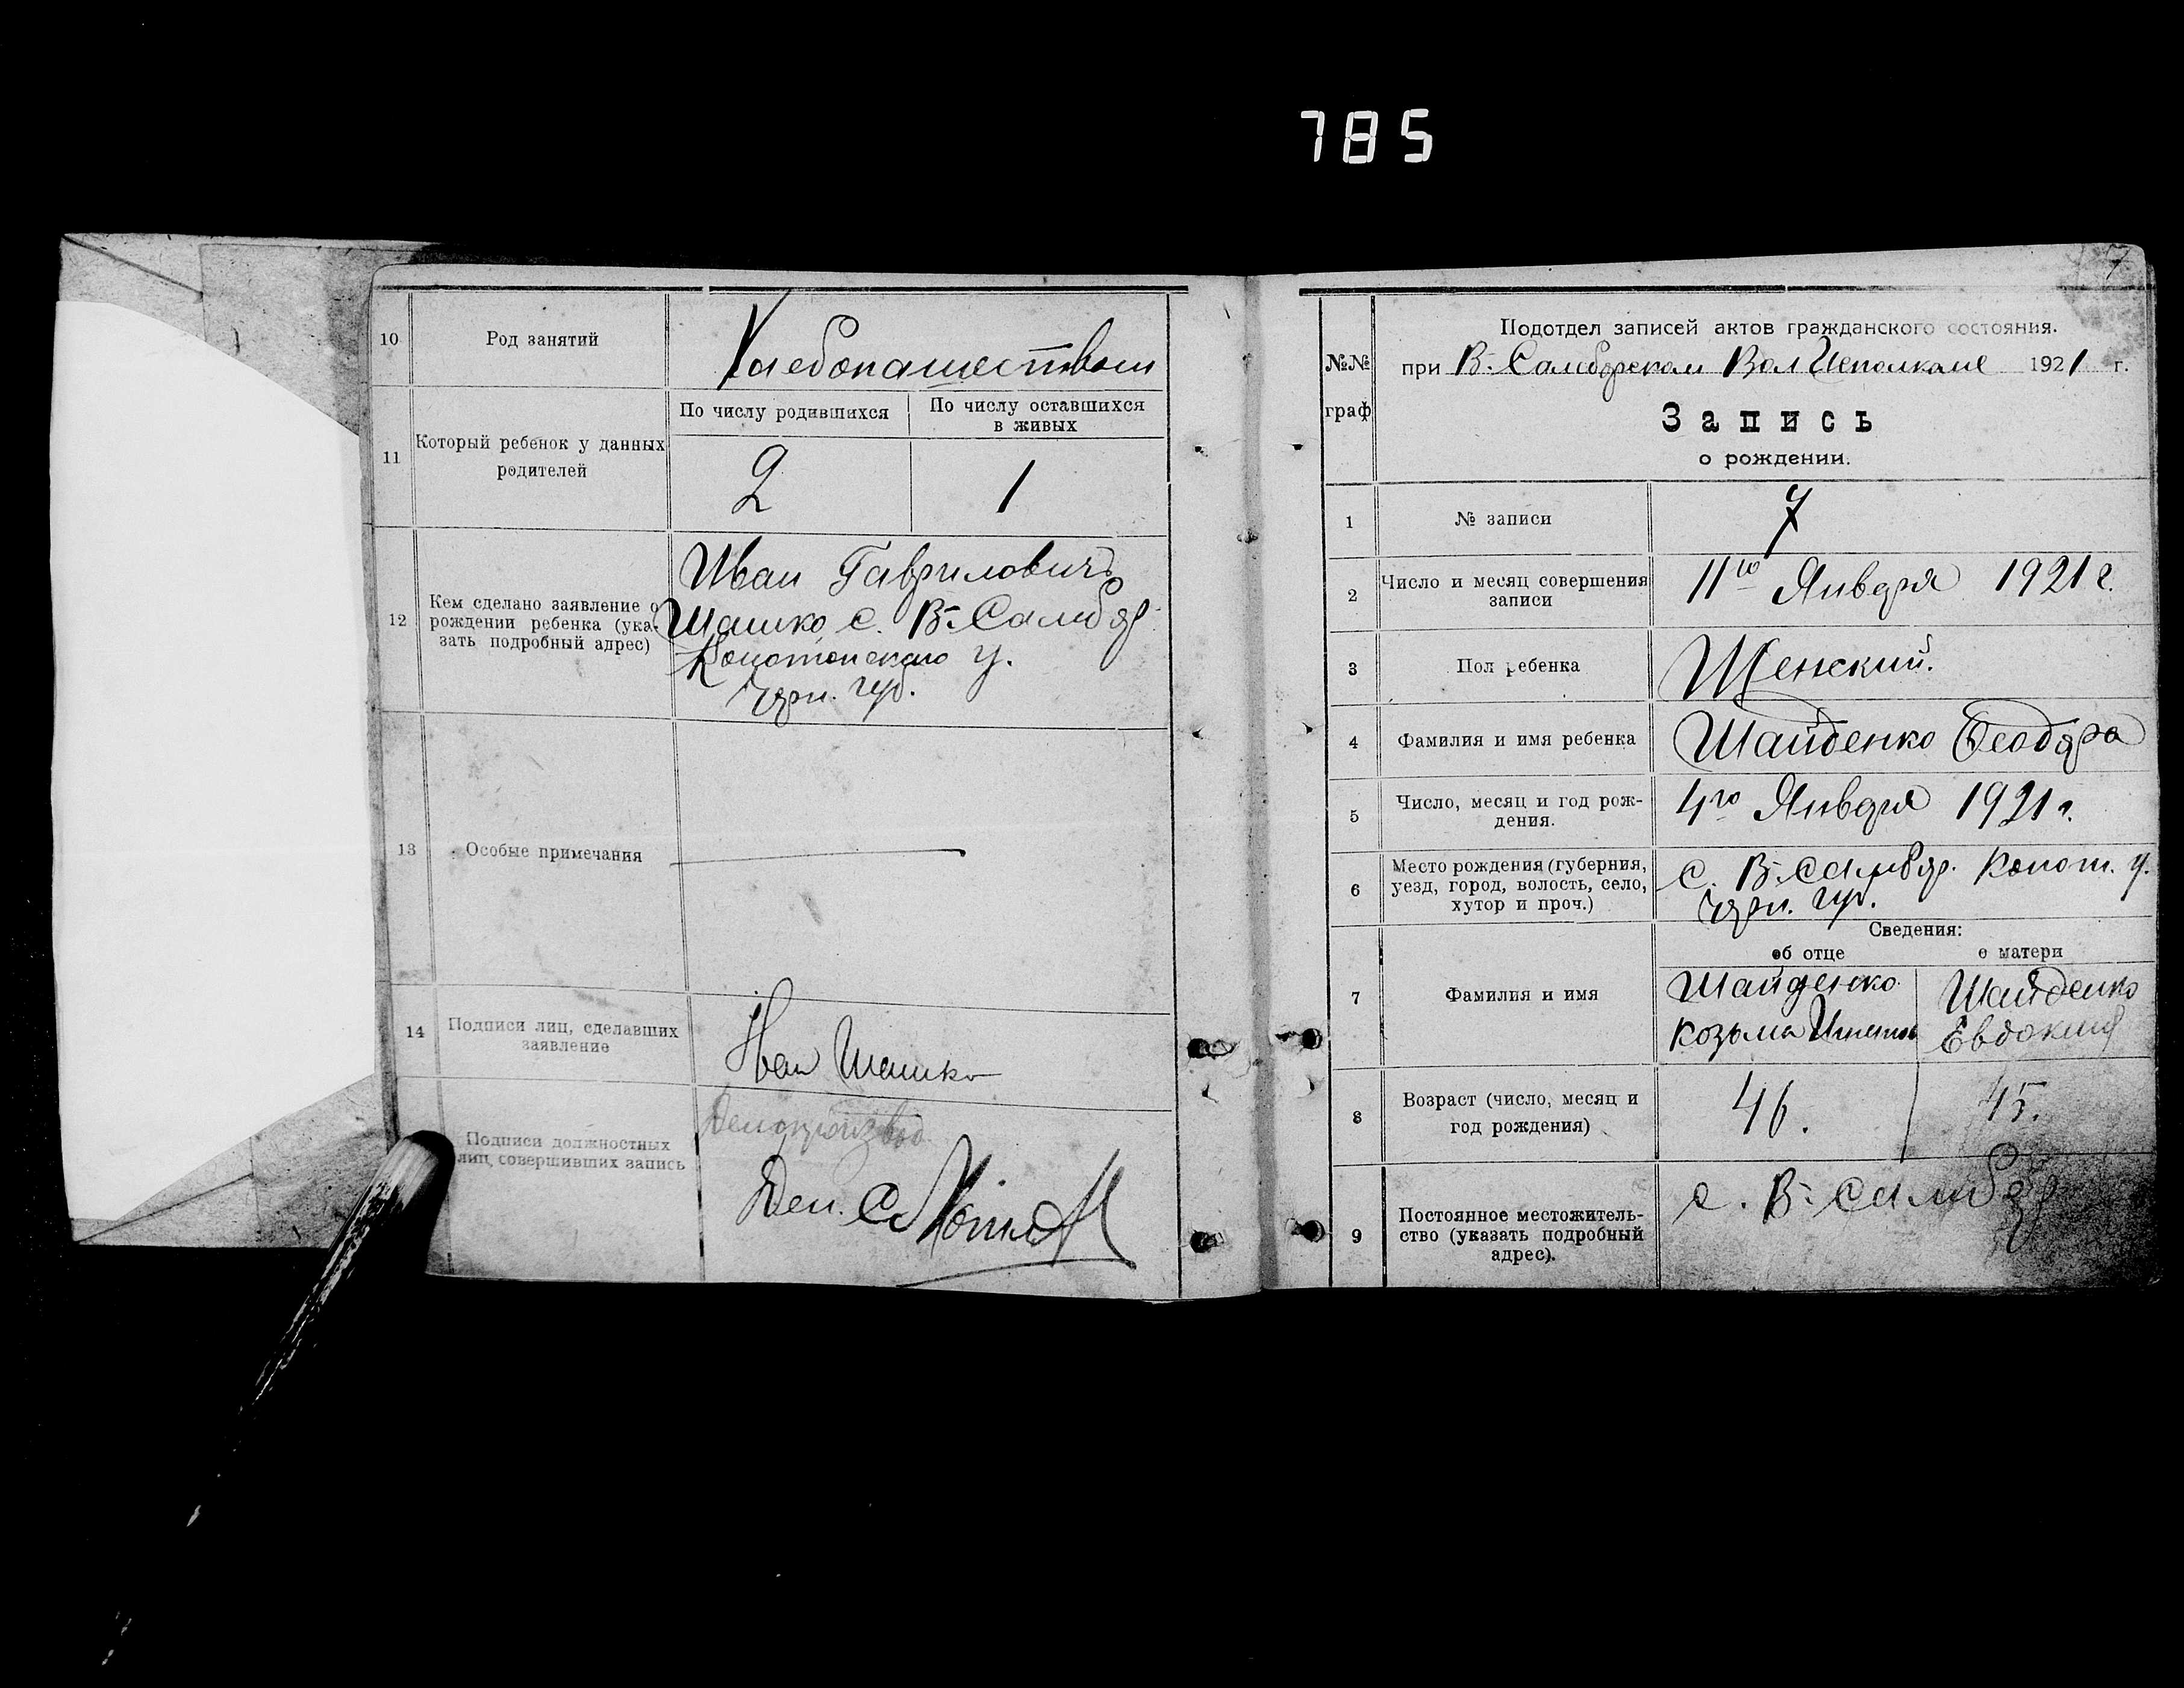 785
10
Род занятий
Хлебопашеством
11
Который ребенок у данных
родителей
По числу родившихся
По числу оставшихся
в живых
2
1
12
Кем сделано заявление о
рождении ребенка (ука-
зать подробный адрес)
Иван Гаврилович
Шашко с. В-Самбор
Конотопскаго у.
Черн. губ.
13
Особые примечания
14
Подписи лиц, сделавших
заявление
Иван Шашко
Подписи должностных
лиц, совершивших запись
Делопроизвод
Дел.
7
№№
граф
Подотдел записей актов гражданского состояния.
при В-Самборском ВолИсполкоме 1921 г.
Запись
о рождении.
1
№ записи
7
2
Число и месяц совершения
записи
11го Января 1921 г.
3
Пол ребенка
Женский.
4
Фамилия и имя ребенка
Шайденко Феодора
5
Число, месяц и год рож-
дения.
4го Января 1921 г.
6
Место рождения (губерния,
уезд, город, волость, село,
хутор и проч.)
с. В-Самбор. Конот. у.
Черн. губ.
Сведения:
об отце
о матери
7
Фамилия и имя
Шайденко
Козьма
Шайденко
Евдокия
8
Возраст (число, месяц и
год рождения)
46.
45.
9
Постоянное местожитель-
ство (указать подробный
адрес).
с. В-Самбор